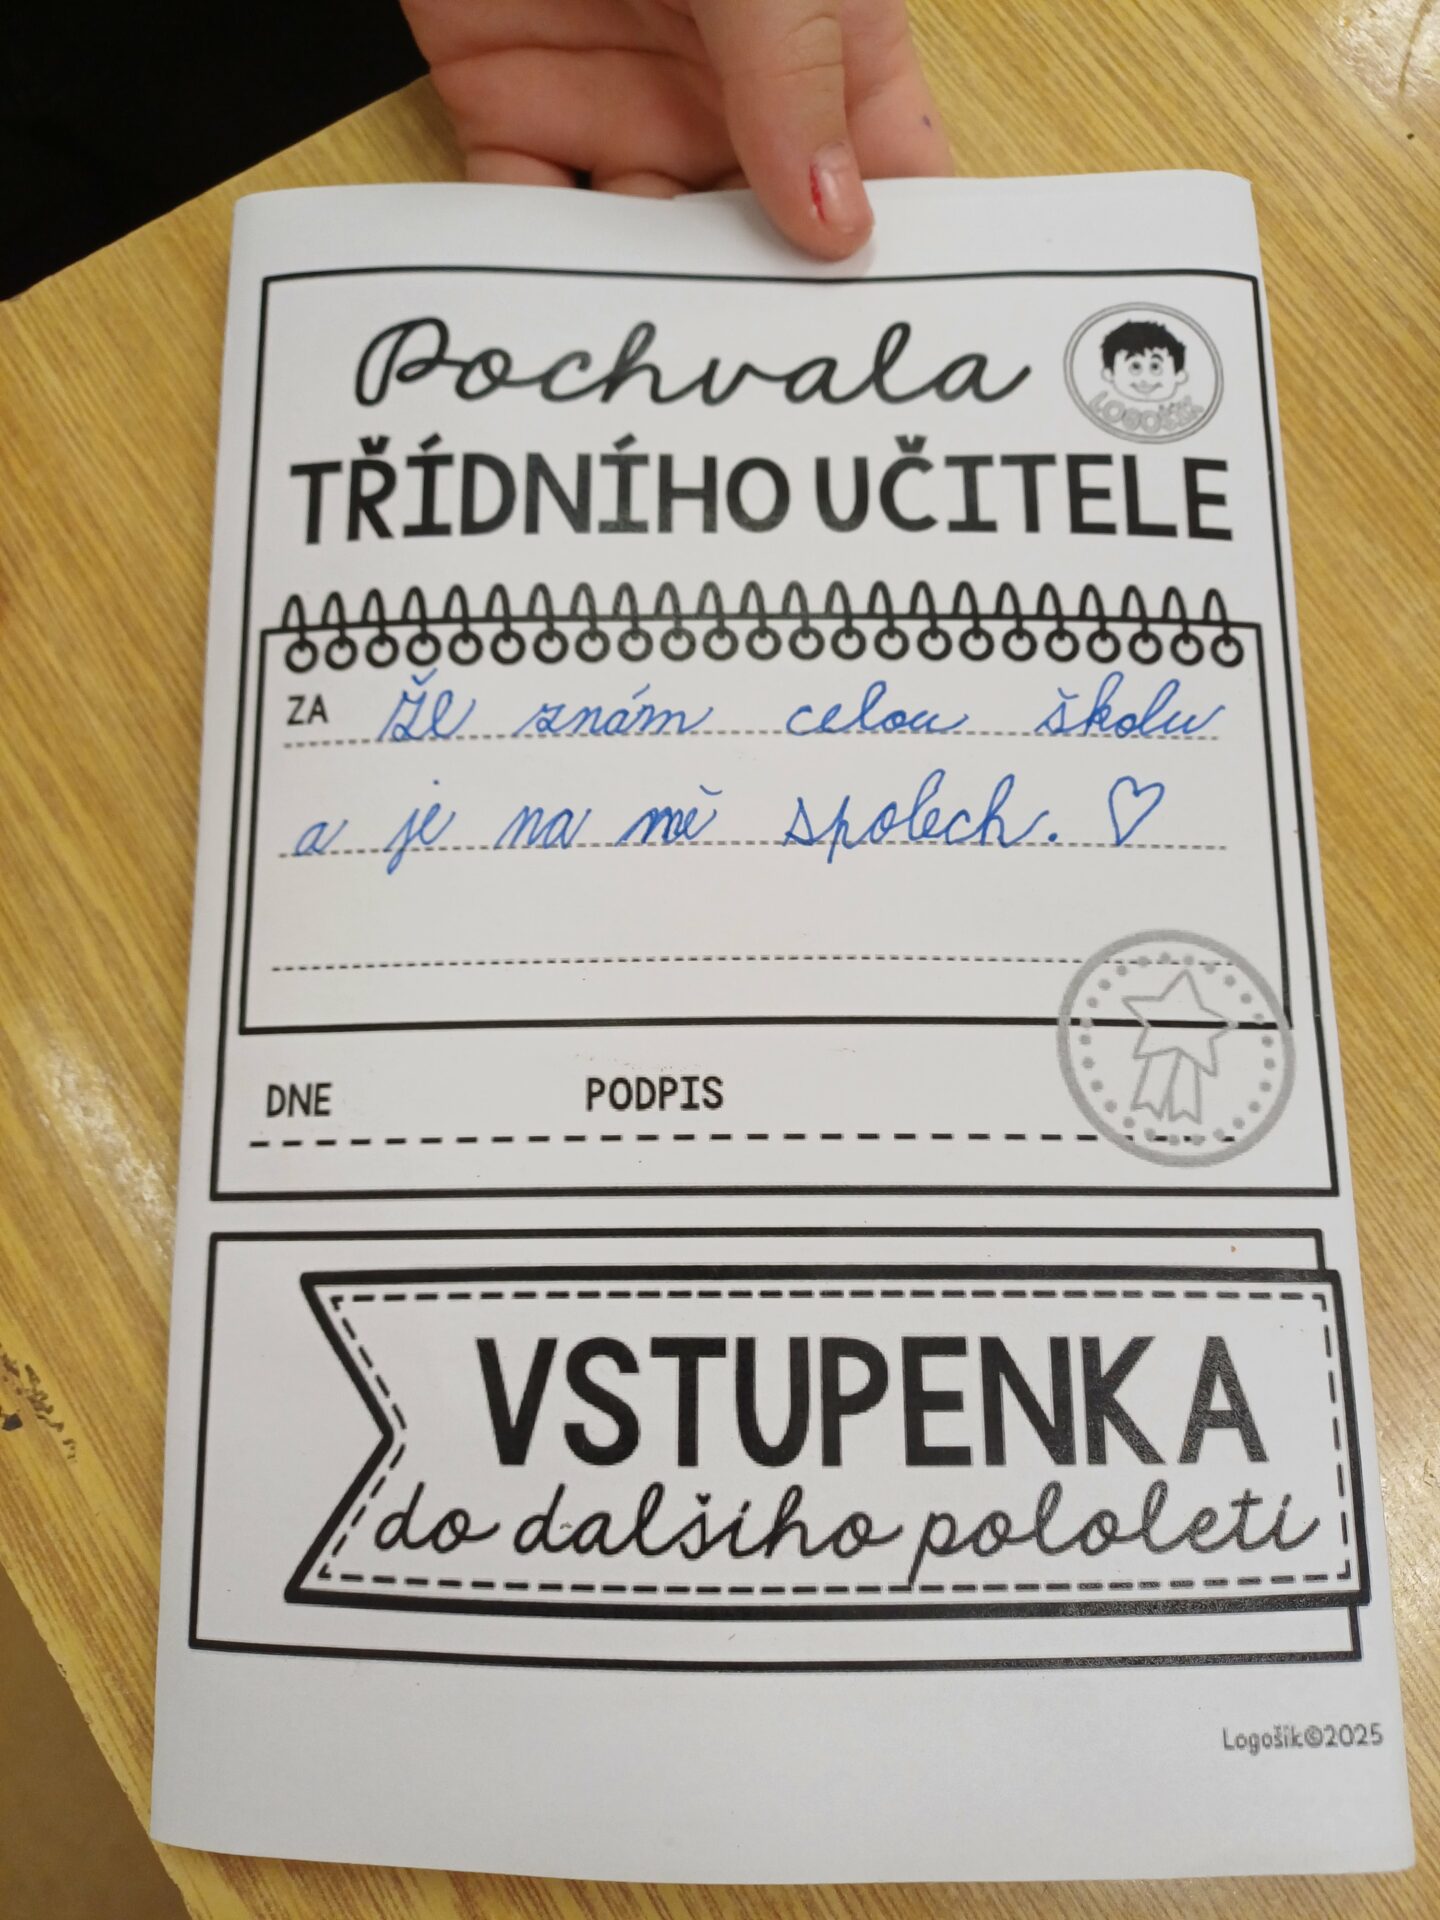 Pochvala
LOGOŠÍK
TŘÍDNÍHO UČITELE
ZA Že znám celou školu
a je na mě spolech. ♡
DNE PODPIS
VSTUPENKA
do dalšího pololetí
Logošík©2025